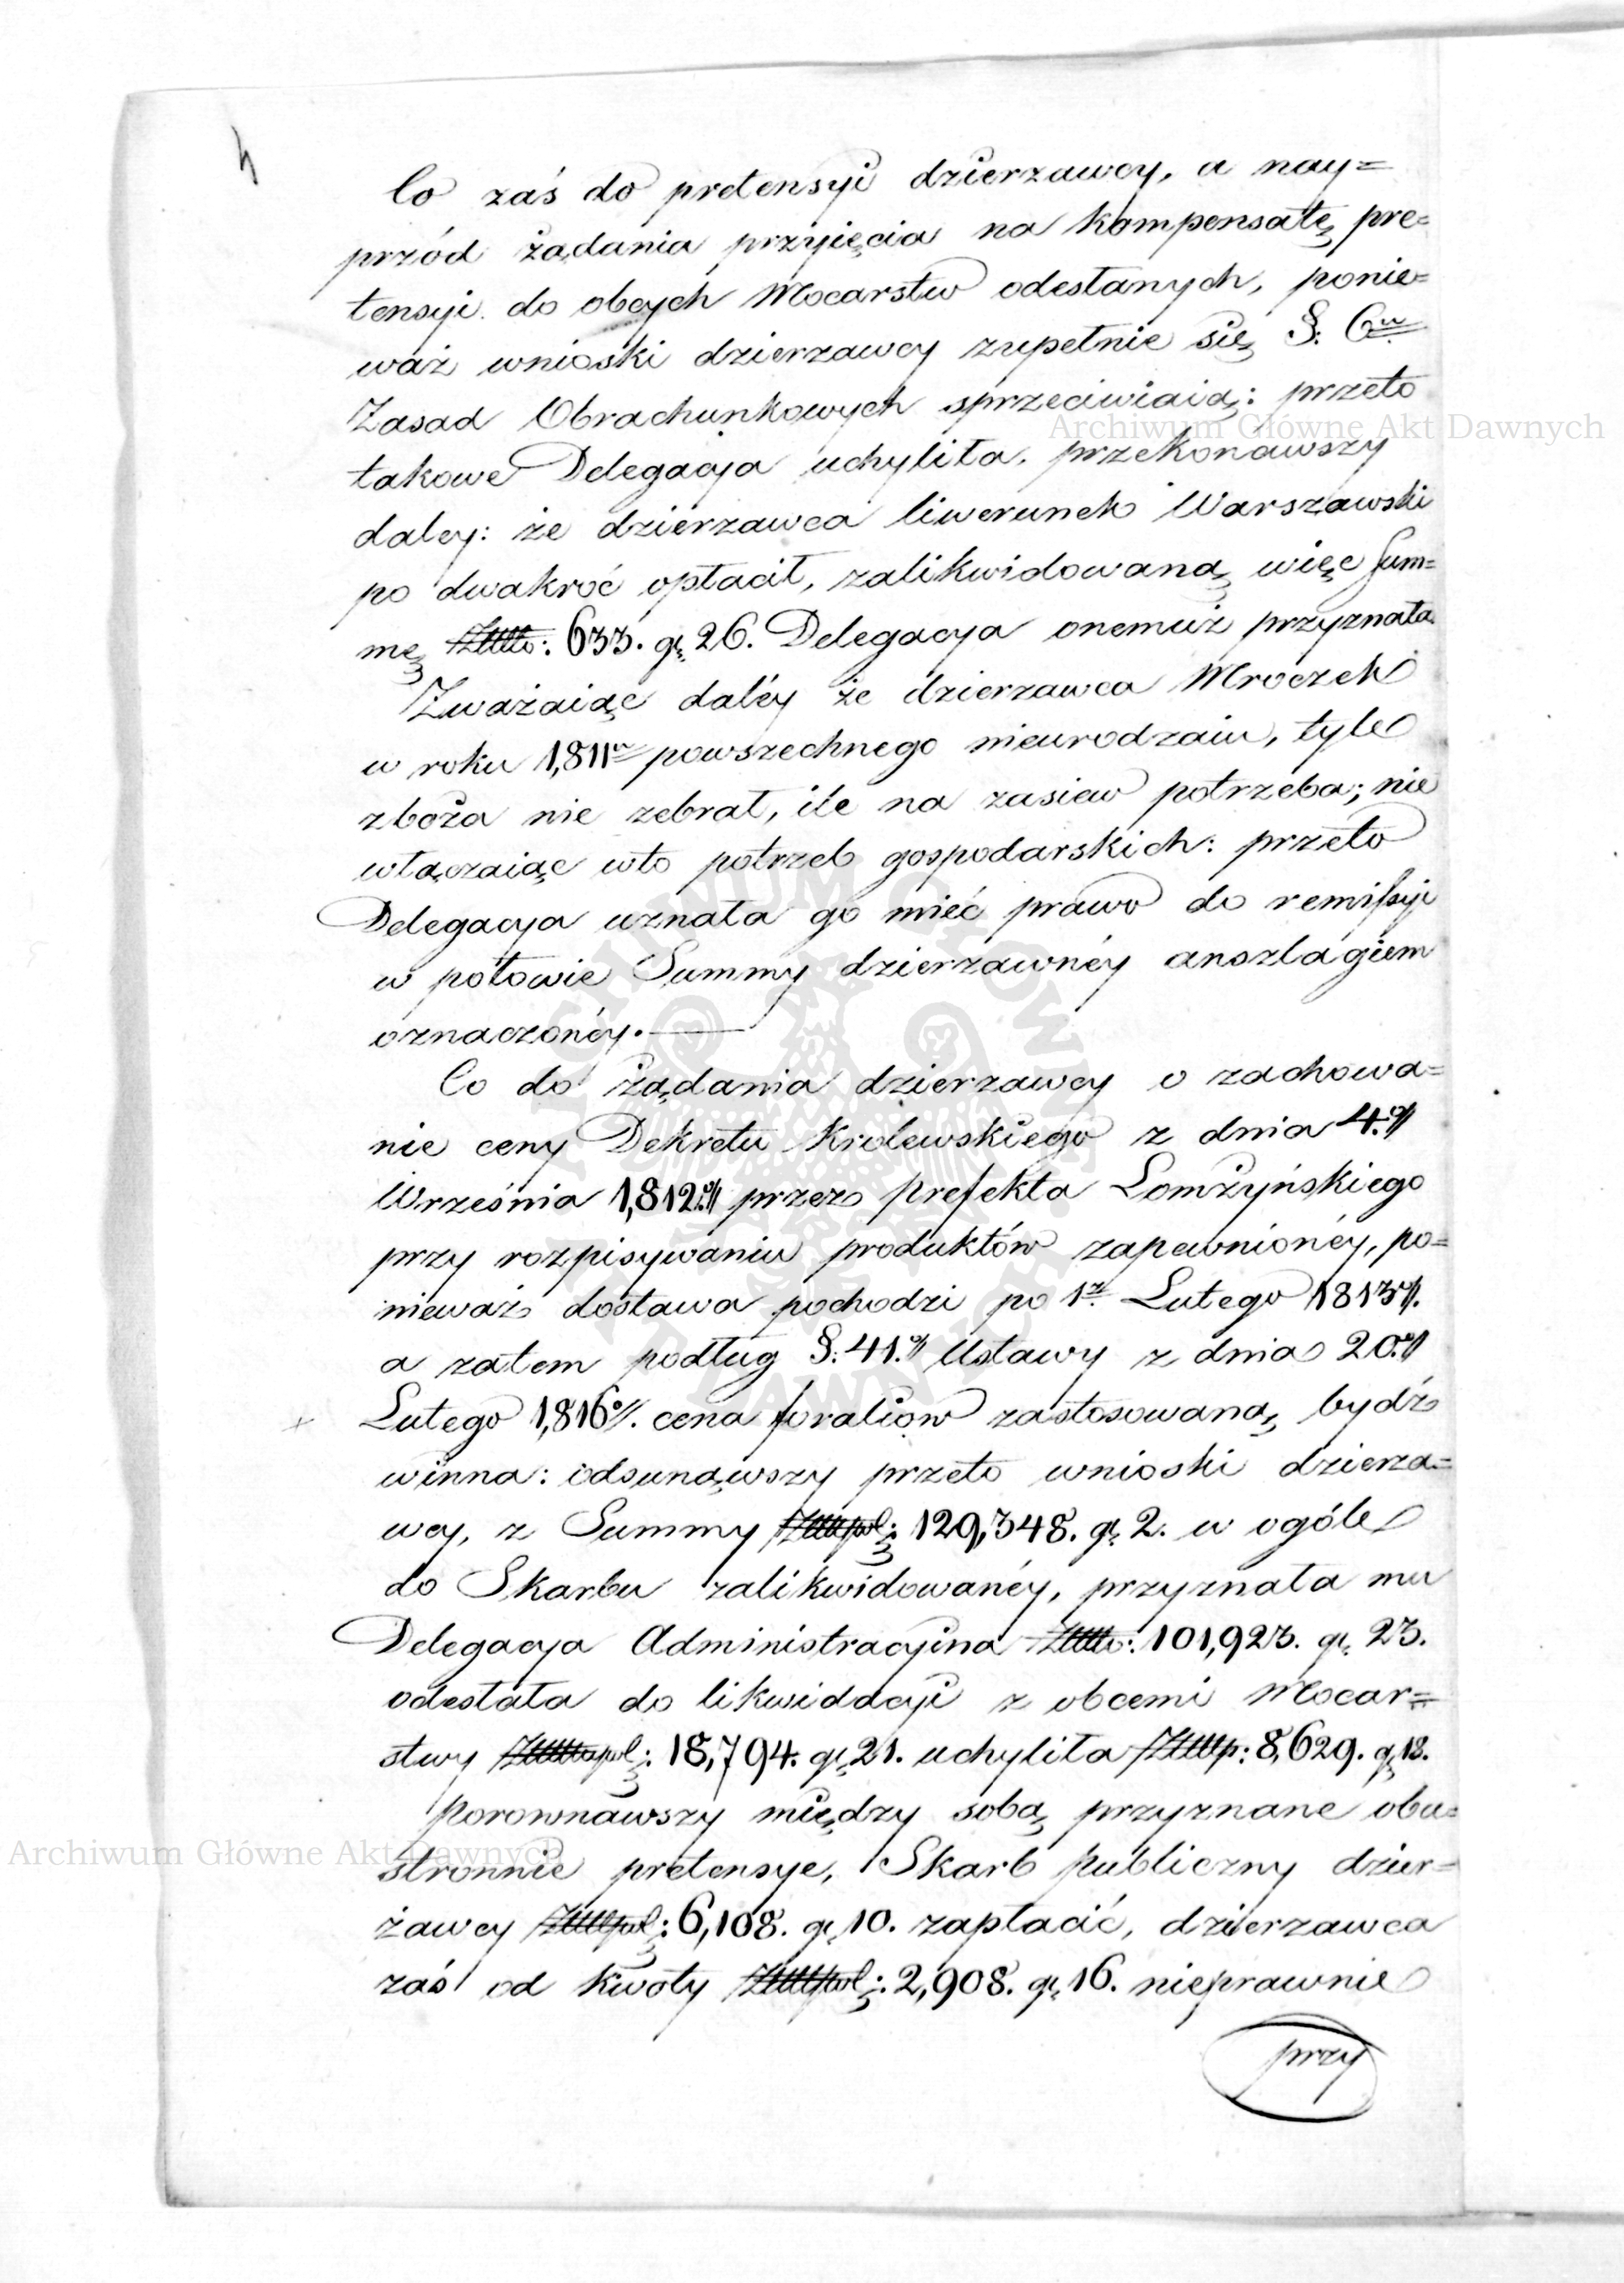 4
Co zaś do pretensyi dzierzawcy, a nay=
przód żądania przyięcia na kompensatę pre=
tensyi do obcych Mocarstw odesłanych, ponie=
waż wnioski dzierzawcy zupełnie się §. 6mu
Zasad Obrachunkowych sprzeciwiaią: przeto
Archiwum Główne Akt Dawnych
takowe Delegacya uchyliła, przekonawszy
daley: że dzierzawca liwerunek Warszawski
po dwakroć opłacił, zalikwidowaną więc Sum=
mę Złłło: 633. gr. 26. Delegacya onemuż przyznała.
Zważaiąc daléy że dzierzawca Mroczek
w roku 1,811m powszechnego nieurodzaiu, tyle
zboża nie zebrał, ile na zasiew potrzeba; nie
włączaiąc wto potrzeb gospodarskich: przeto
Delegacya uznała go mieć prawo do remissyi
w połowie Summy dzierzawnéy anszlagiem
oznaczonéy.
Co do żądania dzierzawcy o zachowa=
nie ceny Dekretu Królewskiego z dnia 4.o
Września 1,812.o przez Prefekta Łomżyńskiego
przy rozpisywaniu produktów zapewnionéy, po=
nieważ dostawa pochodzi po 1.z Lutego 1813.o
a zatem podług §: 41.o Ustawy z dnia 20.o
Lutego 1,816.o cena foraliow zastosowaną bydź
winna: odsunąwszy przeto wnioski dzierza=
wcy, z Summy Złłłpol: 129,348. gr. 2. w ogóle
do Skarbu zalikwidowanéy, przyznała mu
Delegacya Administracyina Złłło: 101,923. gr. 23.
odesłała do likwidacyi z obcemi Mocar=
stwy Złłłłopol: 18,794. gr. 21. uchyliła Złłłp: 8,629. gr. 18.
Porownawszy między sobą przyznane obu=
Archiwum Główne Akt Dawnych
stronnie pretensye, Skarb Publiczny dzier=
żawcy Złłłpol: 6,108. gr. 10. zapłacić, dzierzawca
zaś od kwoty Złłłpol: 2,908. gr. 16. nieprawnie
przy